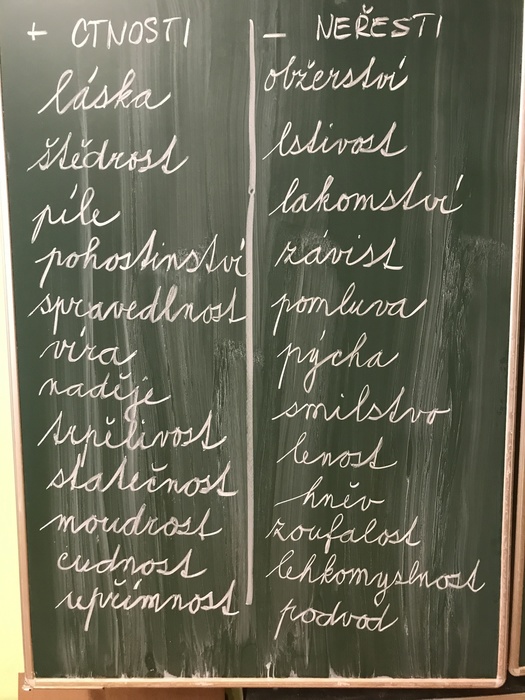 + CTNOSTI
láska
štědrost
píle
pohostinství
spravedlnost
víra
naděje
trpělivost
statečnost
moudrost
cudnost
upřímnost
- NEŘESTI
obžerství
lstivost
lakomství
závist
pomluva
pýcha
smilstvo
lenost
hněv
zoufalost
lehkomyslnost
podvod